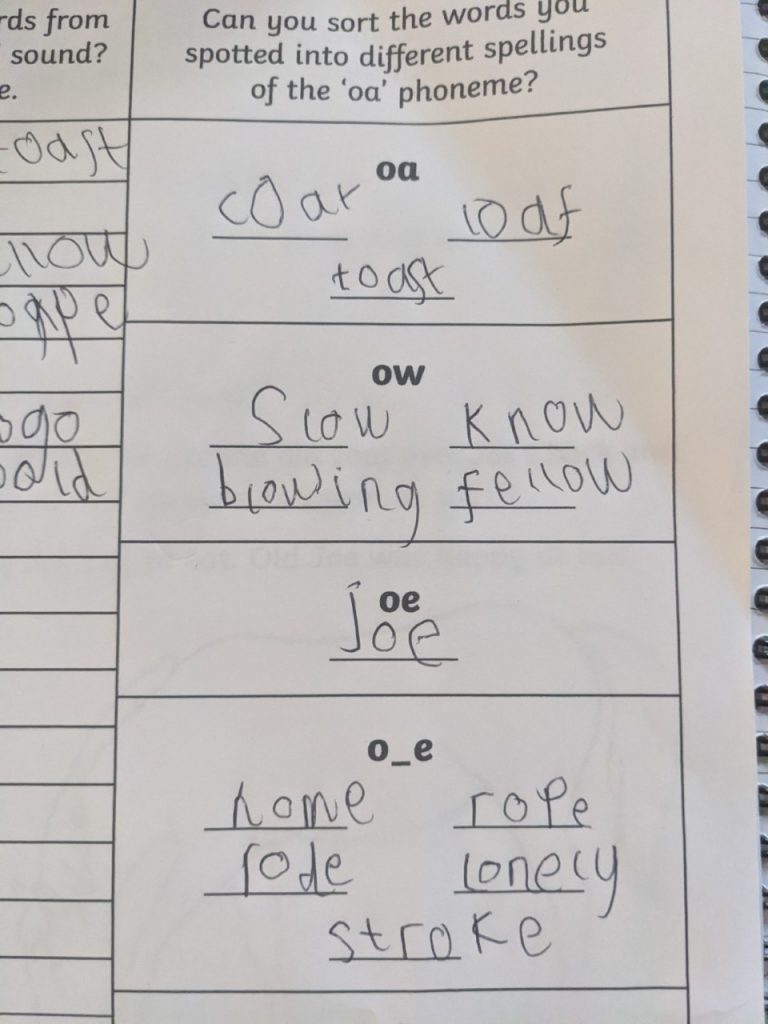 rds from
sound?
e.
toast
llow
ogo
Can you sort the words you
spotted into different spellings
of the 'oa' phoneme?
oa
coat loaf
toast
ow
Slow know
blowing fellow
oe
Joe
o_e
home rope
rode lonely
stroke